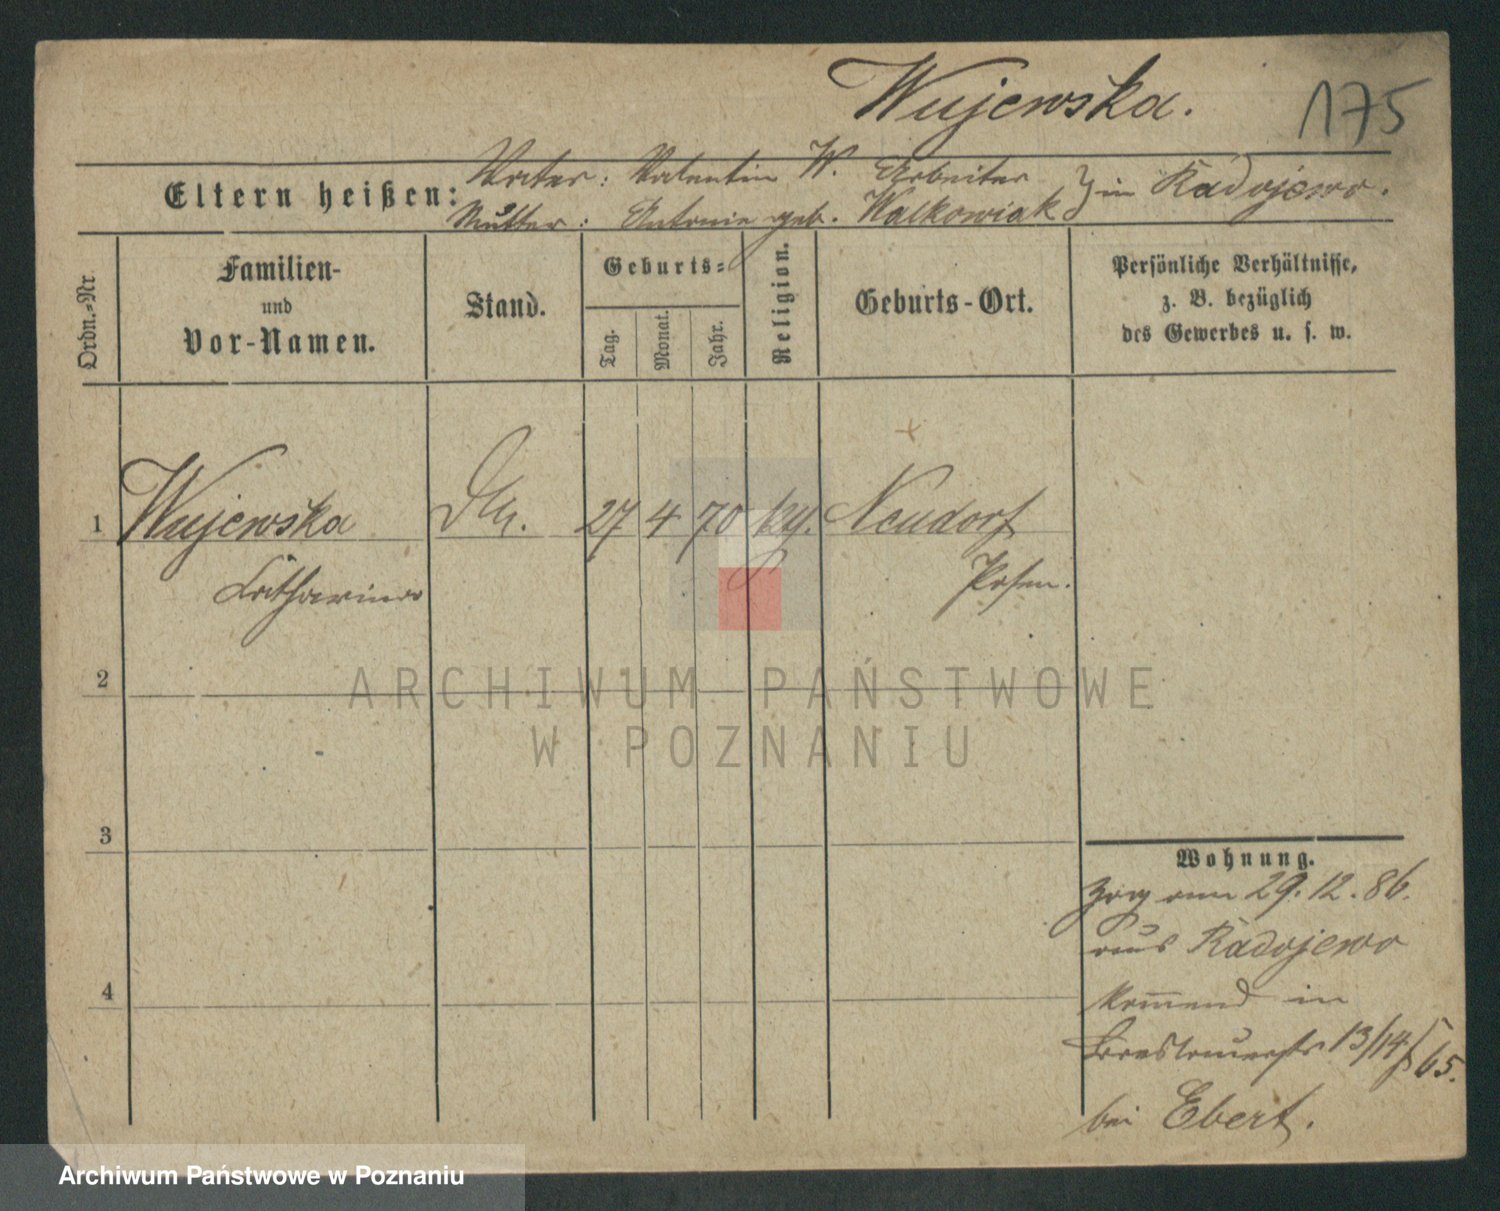 Wujewska.
175
Eltern heißen:
Vater: Valentin W. Arbeiter
Mutter: Antonie geb. Walkowiak } in Radojewo.
Ordn.-Nr.
Familien-
und
Vor-Namen.
Stand.
Geburts-
Tag.
Monat.
Jahr.
Religion.
Geburts-Ort.
Persönliche Verhältnisse,
z. B. bezüglich
des Gewerbes u. s. w.
1 Wujewska 27 4 70 Neudorf
Catharina Posen.
2
3
4
Wohnung.
Zog am 29.12.86.
aus Radojewo
kom̄end in
13/14 65.
bei Ebert.
ARCHIWUM PAŃSTWOWE
W POZNANIU
Archiwum Państwowe w Poznaniu